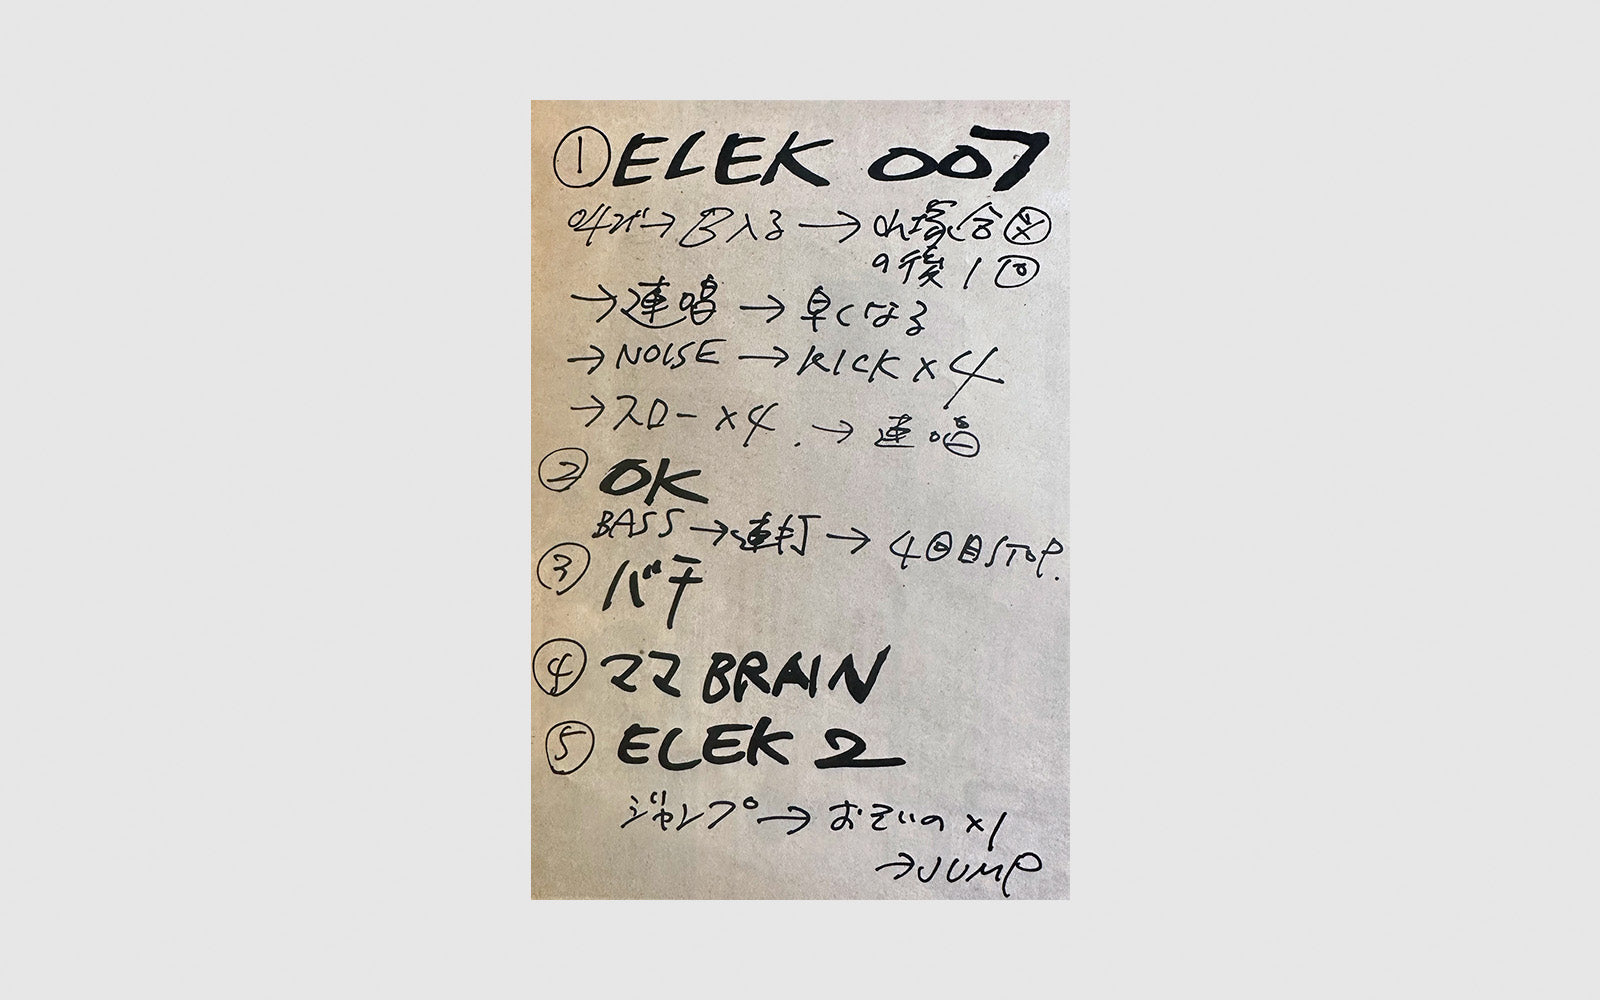 ① ELEK 007
叫び→B入る→山塚合図
の後1回
→連唱→早くなる
→NOISE→KICK×4
→スロー×4.→連唱
② OK
BASS→連打→4回目STOP.
③ バチ
④ ママBRAIN
⑤ ELEK 2
ジャンプ→おそいの×1
→JUMP